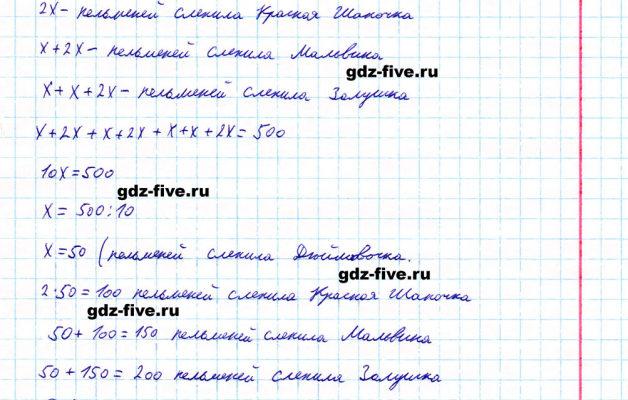 2х - пельменей слепила Красная Шапочка
х + 2х - пельменей слепила Мальвина
gdz-five.ru
х + х + 2х - пельменей слепила Золушка
х + 2х + х + 2х + х + х + 2х = 500
10х = 500
gdz-five.ru
х = 500 : 10
х = 50 (пельменей слепила Дюймовочка.
gdz-five.ru
2 · 50 = 100 пельменей слепила Красная Шапочка
gdz-five.ru
50 + 100 = 150 пельменей слепила Мальвина
50 + 150 = 200 пельменей слепила Золушка